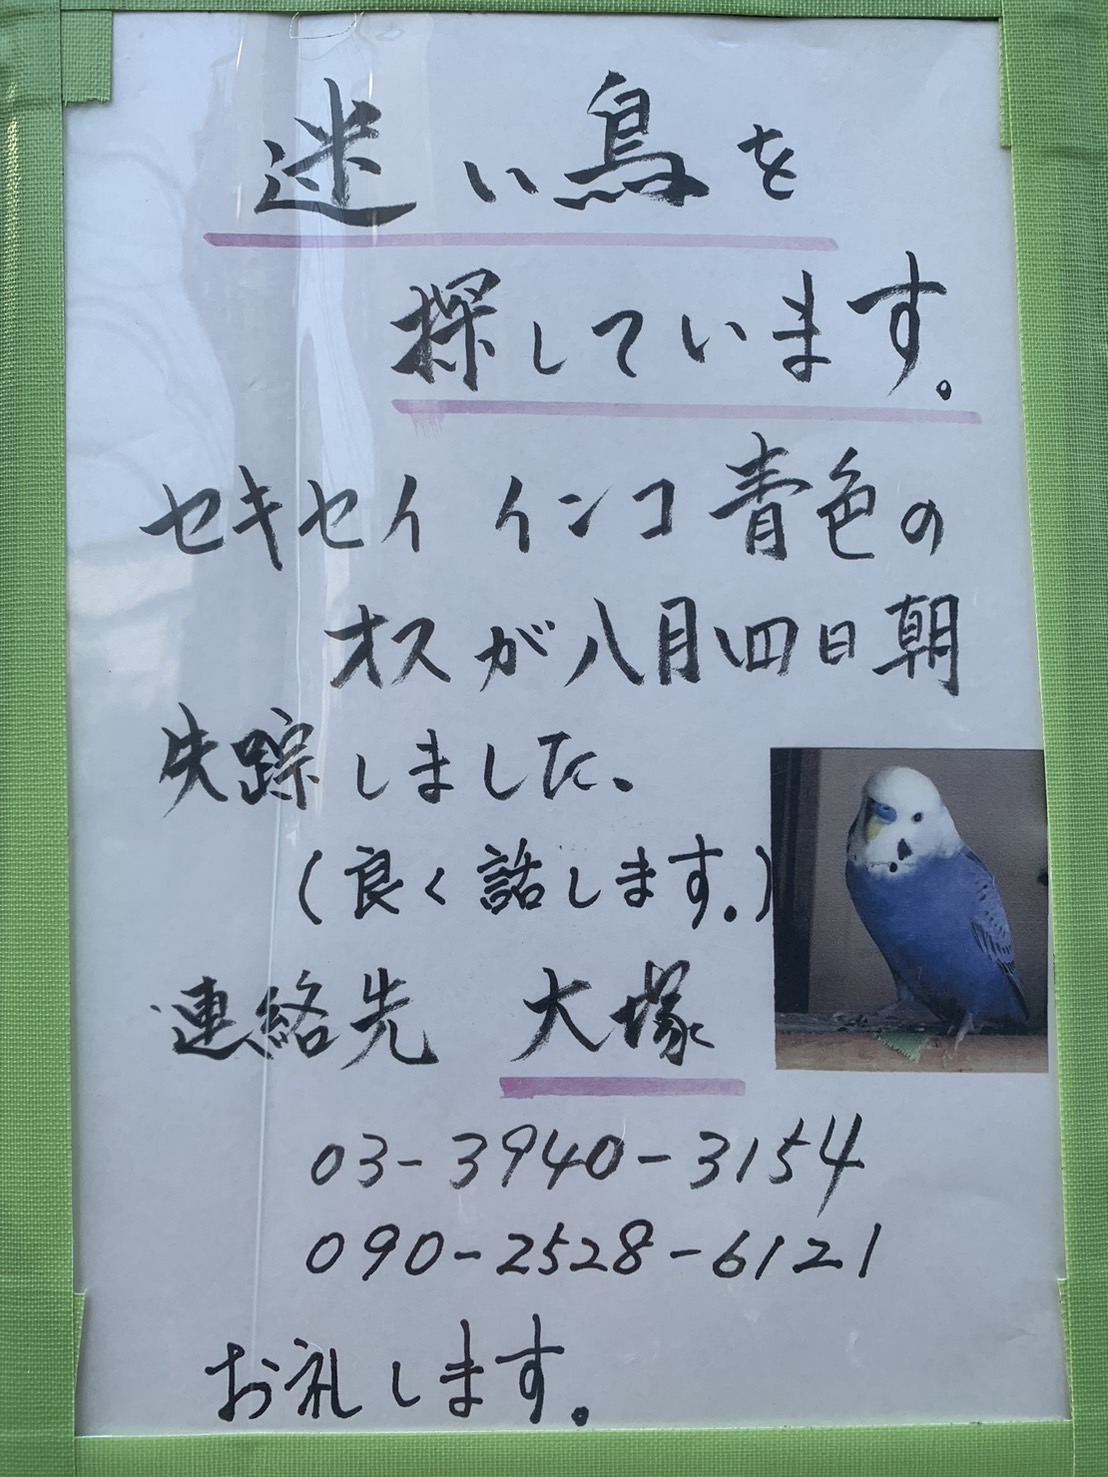 迷い鳥を
探しています。
セキセイインコ青色の
オスが八月四日朝
失踪しました、
(良く話します。)
連絡先 大塚
03-3940-3154
090-2528-6121
お礼します。